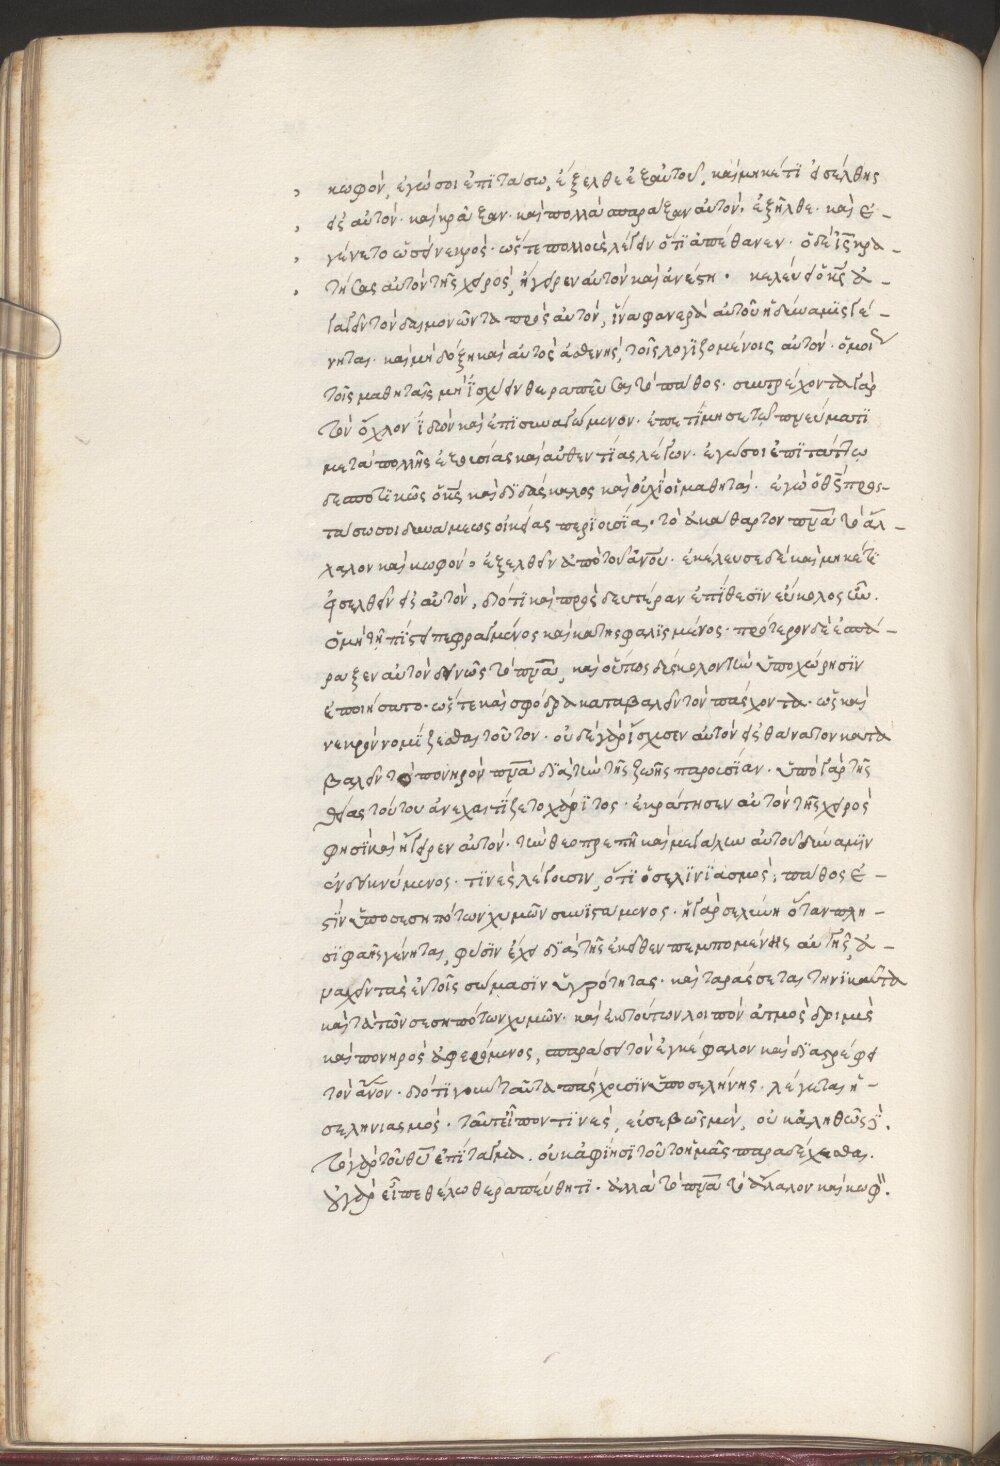 κωφὸν, ἐγώ σοι ἐπιτάσω, ἔξελθε ἐξ αὐτοῦ, καὶ μηκέτι εἰσέλθης
εἰς αὐτόν· καὶ κράξαν· καὶ πολλὰ σπαράξαν αὐτὸν, ἐξῆλθε· καὶ ἐ-
γένετο ὡσεὶ νεκρός· ὥστε πολλοὺς λέγειν ὅτι ἀπέθανεν· ὁ δὲ ἰς κρα-
τήσας αὐτὸν τῆς χειρὸς, ἤγειρεν αὐτὸν καὶ ἀνέστη· κελεύει ὁ κς ἀ-
γαγεῖν τὸν δαιμονῶντα πρὸς αὐτὸν, ἵνα φανερὰ αὐτοῦ ἡ δύναμις γέ-
νηται· καὶ μὴ δόξη καὶ αὐτὸς ἀσθενὴς, τοῖς λογιζομένοις αὐτὸν ὅμοιον
τοῖς μαθηταῖς μὴ ἰσχύειν θεραπεῦσαι τὸ πάθος· συντρέχοντα γὰρ
τὸν ὄχλον ἰδὼν καὶ ἐπισυναγόμενον· ἐπετίμησε τῷ πνεύματι
μετὰ πολλῆς ἐξουσίας καὶ αὐθεντίας λέγων· ἐγώ σοι ἐπιτάττω
δεσποτικῶς ὁ κς καὶ διδάσκαλος καὶ οὐχὶ οἱ μαθηταί· ἐγὼ ὁ θς προσ-
τάσω σοι δυνάμεως οἰκείας περιουσία· τὸ ἀκάθαρτον πνα τὸ ἄλ-
λαλον καὶ κωφὸν· ἐξελθεῖν ἀπὸ τοῦ ανου· ἐκέλευσε δὲ καὶ μηκέτι
εἰσελθεῖν εἰς αὐτὸν, διότι καὶ πρὸς δευτέραν ἐπίθεσιν εὔκολος ἦν.
ὁ μὴ τῇ πίστει πεφραγμένος καὶ κατησφαλισμένος· πρότερον δὲ ἐσπά-
ραξεν αὐτὸν δεινῶς τὸ πνα, καὶ οὕτως δύσκολον τὴν ὑποχώρησιν
ἐποιήσατο· ὥστε καὶ σφόδρα καταβαλεῖν τὸν πάσχοντα· ὡς καὶ
νεκρὸν νομίζεσθαι τοῦτον· οὐδὲ γὰρ ἴσχυσεν αὐτὸν εἰς θάνατον κατα
βαλεῖν τὸ πονηρὸν πνα διὰ τὴν τῆς ζωῆς παρουσίαν· ὑπὸ γὰρ τῆς
θείας τούτου ἀνεχαιτίζετο χάριτος· ἐκράτησεν αὐτὸν τῆς χειρὸς
φησὶ καὶ ἤγειρεν αὐτὸν· τὴν θεοπρεπῆ καὶ μεγάλην αὐτοῦ δύναμιν
ἐνδεικνύμενος· τινὲς λέγουσιν, ὅτι ὁ σεληνιασμὸς, πάθος ἐ-
στὶν ὑπὸ σεσηπότων χυμῶν συνιστάμενος· ἡ γὰρ σελήνη ὅταν πλη-
σιφαὴς γένηται, φύσιν ἔχει διὰ τῆς ἐκεῖθεν πεμπομένης αὐγῆς, ἀ-
ναχεῖν τὰς ἐν τοῖς σώμασιν ὑγρότητας· καὶ ταράσσεται τηνικαῦτα
κατὰ τῶν σεσηπότων χυμῶν· καὶ ἐκ τούτων λοιπὸν ἀτμὸς δριμὺς
καὶ πονηρὸς ἀφερόμενος, σπαράσει τὸν ἐγκέφαλον καὶ διαστρέφει
τὸν ανον· διότι γοῦν ταῦτα πάσχουσιν ὑπὸ σελήνης· λέγεται ἡ-
σεληνιασμός· ταῦτ εἶπον τινὲς, εὐσεβῶς μὲν, οὐκ ἀληθῶς ϊ.
τὸ γὰρ τοῦ θυ ἐπίταγμα· οὐκ ἀφίησι τοῦτο ἡμᾶς παραδέχεσθαι.
οὐ γὰρ εἶπε θέλω θεραπεύθητι· ἀλλὰ τὸ πνα τὸ ἄλαλον καὶ κωφ.